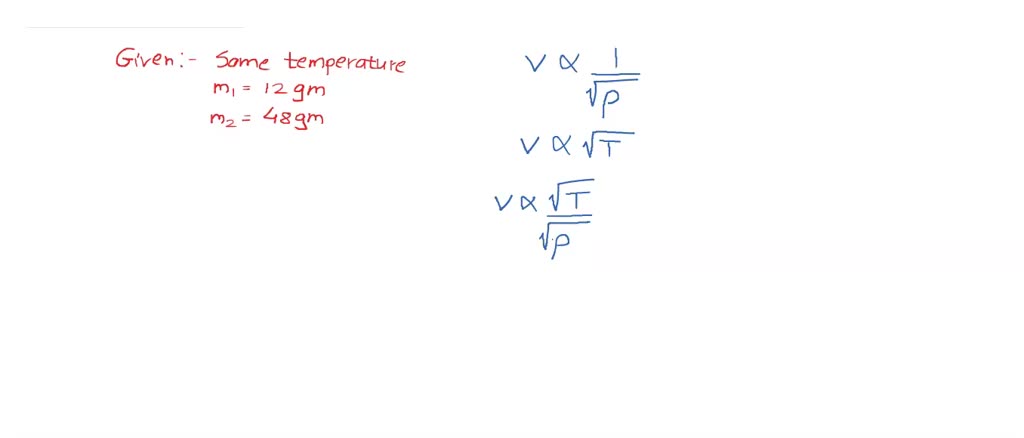 Given:- Same temperature
m₁ = 12gm
m₂ = 48gm
V ∝ 1/√ρ
V ∝ √T
V ∝ √T/√ρ